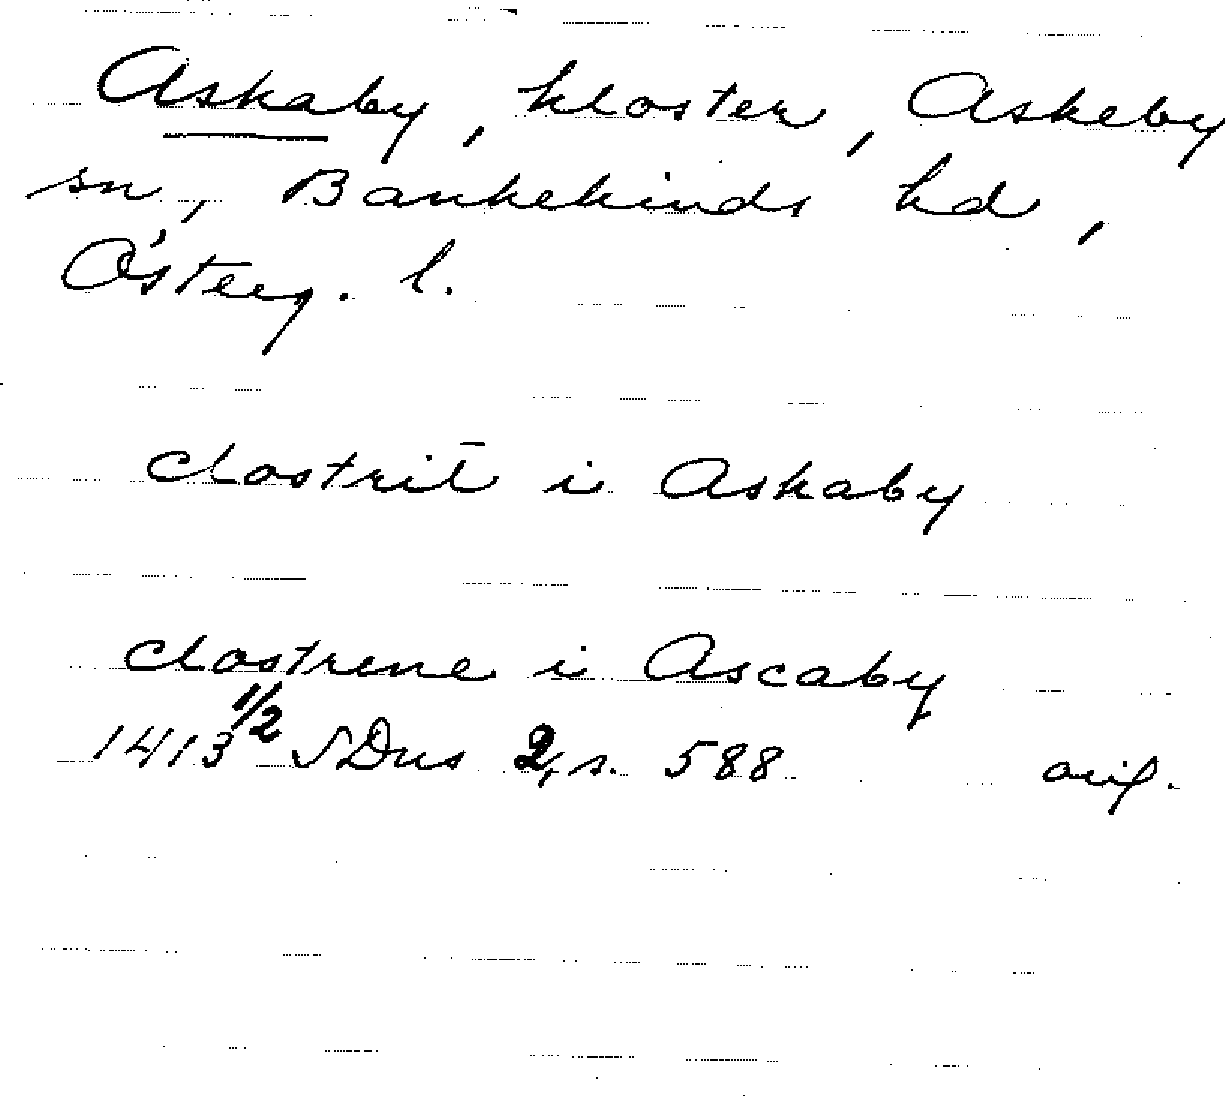 Askaby, kloster, Askeby
sn, Bankekinds hd,
Österg. l.
clostrit̄ i Askaby
clostrene i Ascaby
1413 1/2 SDns 2, s. 588 orig.